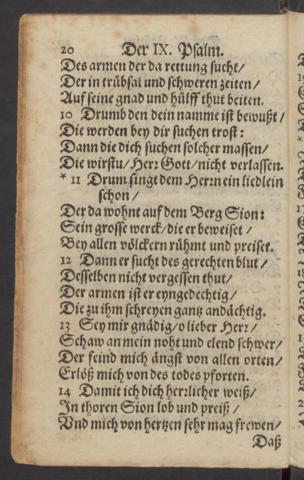 20 Der IX. Psalm.
Des armen der da rettung sucht/
Der in trübsal und schweren zeiten/
Auf seine gnad und hülff thut beiten.
10 Drumb den dein namme ist bewußt/
Die werden bey dir suchen trost:
Dann die dich suchen solcher massen/
Die wirstu/ Herr Gott/ nicht verlassen.
* 11 Drum singt dem Herrn ein liedlein
schon/
Der da wohnt auf dem Berg Sion:
Sein grosse werck/ die er beweiset/
Bey allen völckern rühmt und preiset.
12 Dann er sucht des gerechten blut/
Desselben nicht vergessen thut/
Der armen ist er eyngedechtig/
Die zu ihm schreyen gantz andächtig.
13 Sey mir gnädig/ o lieber Herr/
Schaw an mein noht und elend schwer/
Der feind mich ängst von allen orten/
Erlöß mich von des todes pforten.
14 Damit ich dich herrlicher weiß/
In thoren Sion lob und preiß/
Vnd mich von hertzen sehr mag frewen/
Daß